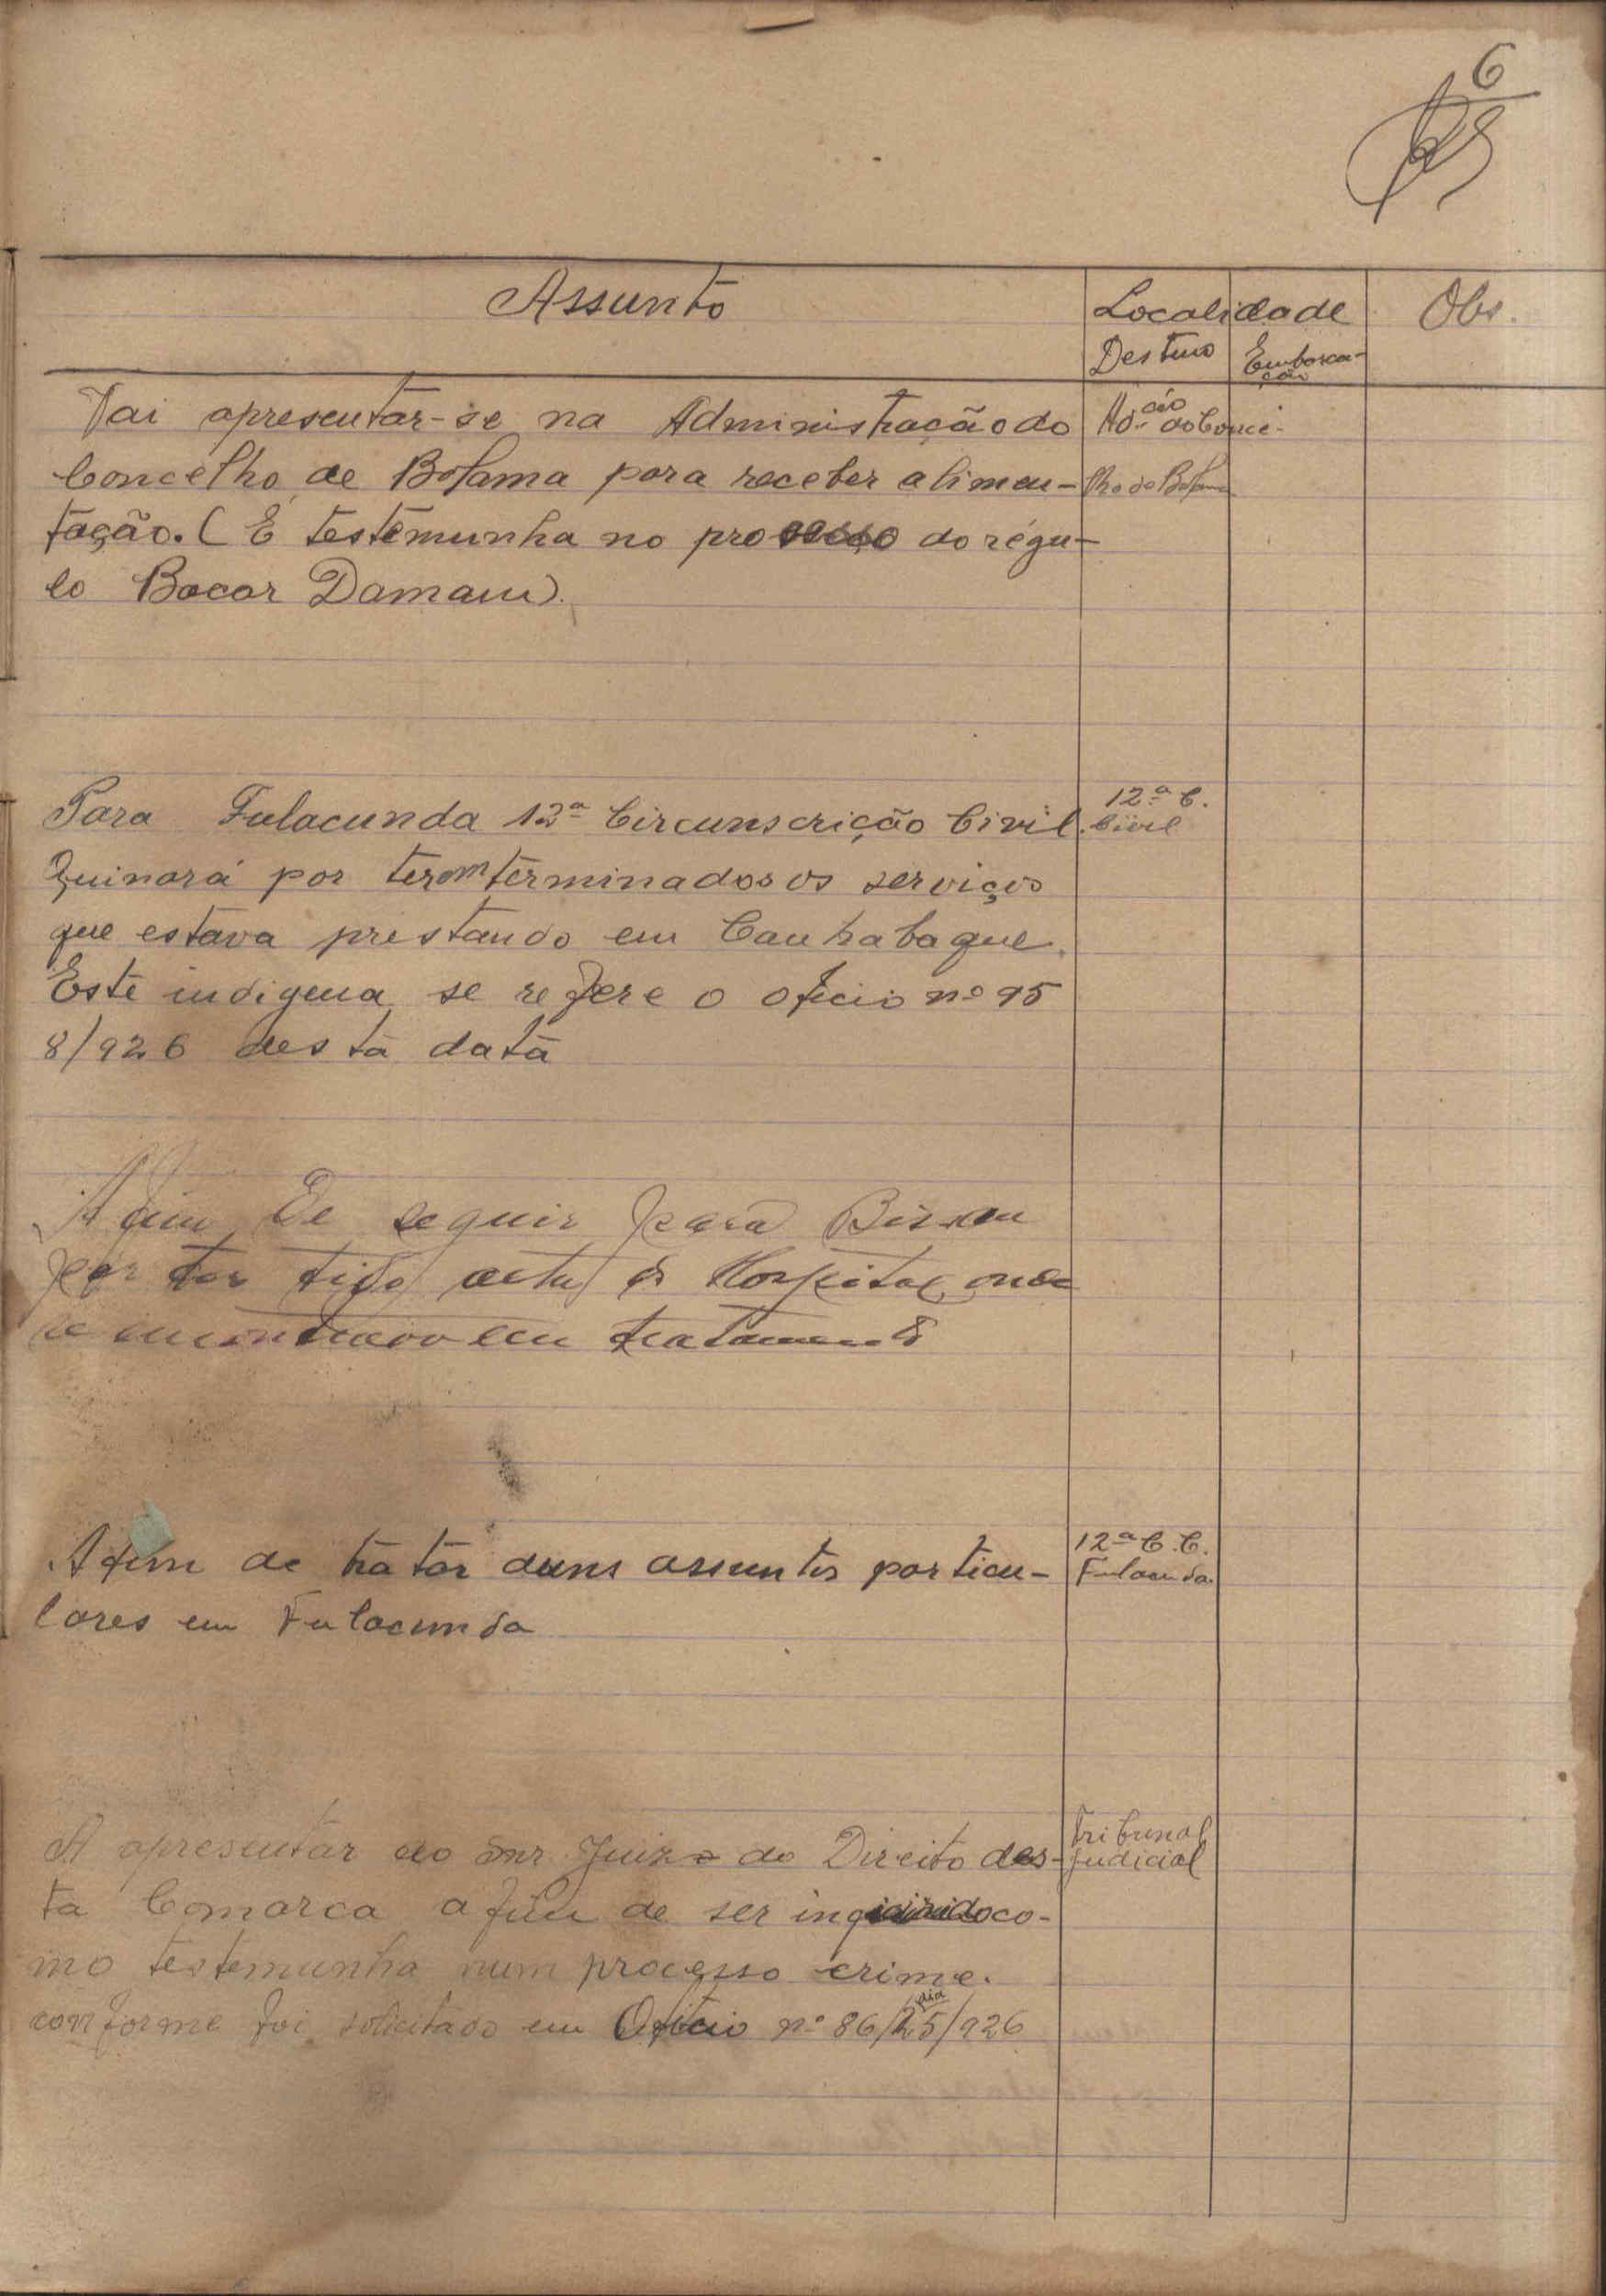 6
Assunto
Localidade
Obs.
Destino
Embarca-
ção
Vai apresentar-se na Administração do
Concelho de Bolama para receber alimen-
tação. (É testemunha no processo do régu-
lo Bacar Damam).
Ad.ção do Conce-
lho de Bolama
Para Fulacunda 12ª Circunscrição Civil
Quinará por terem terminados os serviços
que estava prestando em Canhabaque.
Este indigena se refere o oficio nº 95
8/926 desta data
12ª C.
Civil
Afim de seguir para Bissau
por ter tido alta do Hospital onde
se encontrava em tratamento
Afim de tratar duns assuntos particu-
lares em Fulacunda
12ª C. C.
Fulacunda.
A apresentar ao Snr. Juiz do Direito des-
ta Comarca afim de ser inquirido co-
mo testemunha num processo crime.
conforme foi solicitado em Oficio nº 86/25/926
dia
Tribunal
Judicial